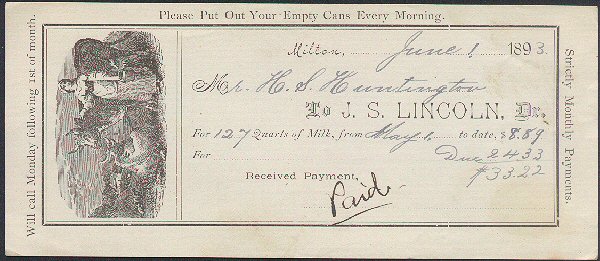 Please Put Out Your Empty Cans Every Morning.
Will call Monday following 1st of month.
Milton, June 1 1893.
Mr. H. S. Huntington
To J. S. LINCOLN, Dr.
For 127 Quarts of Milk, from May 1. to date, $8.89
For Due 24 33
$33.22
Received Payment,
Paid.
Strictly Monthly Payments.